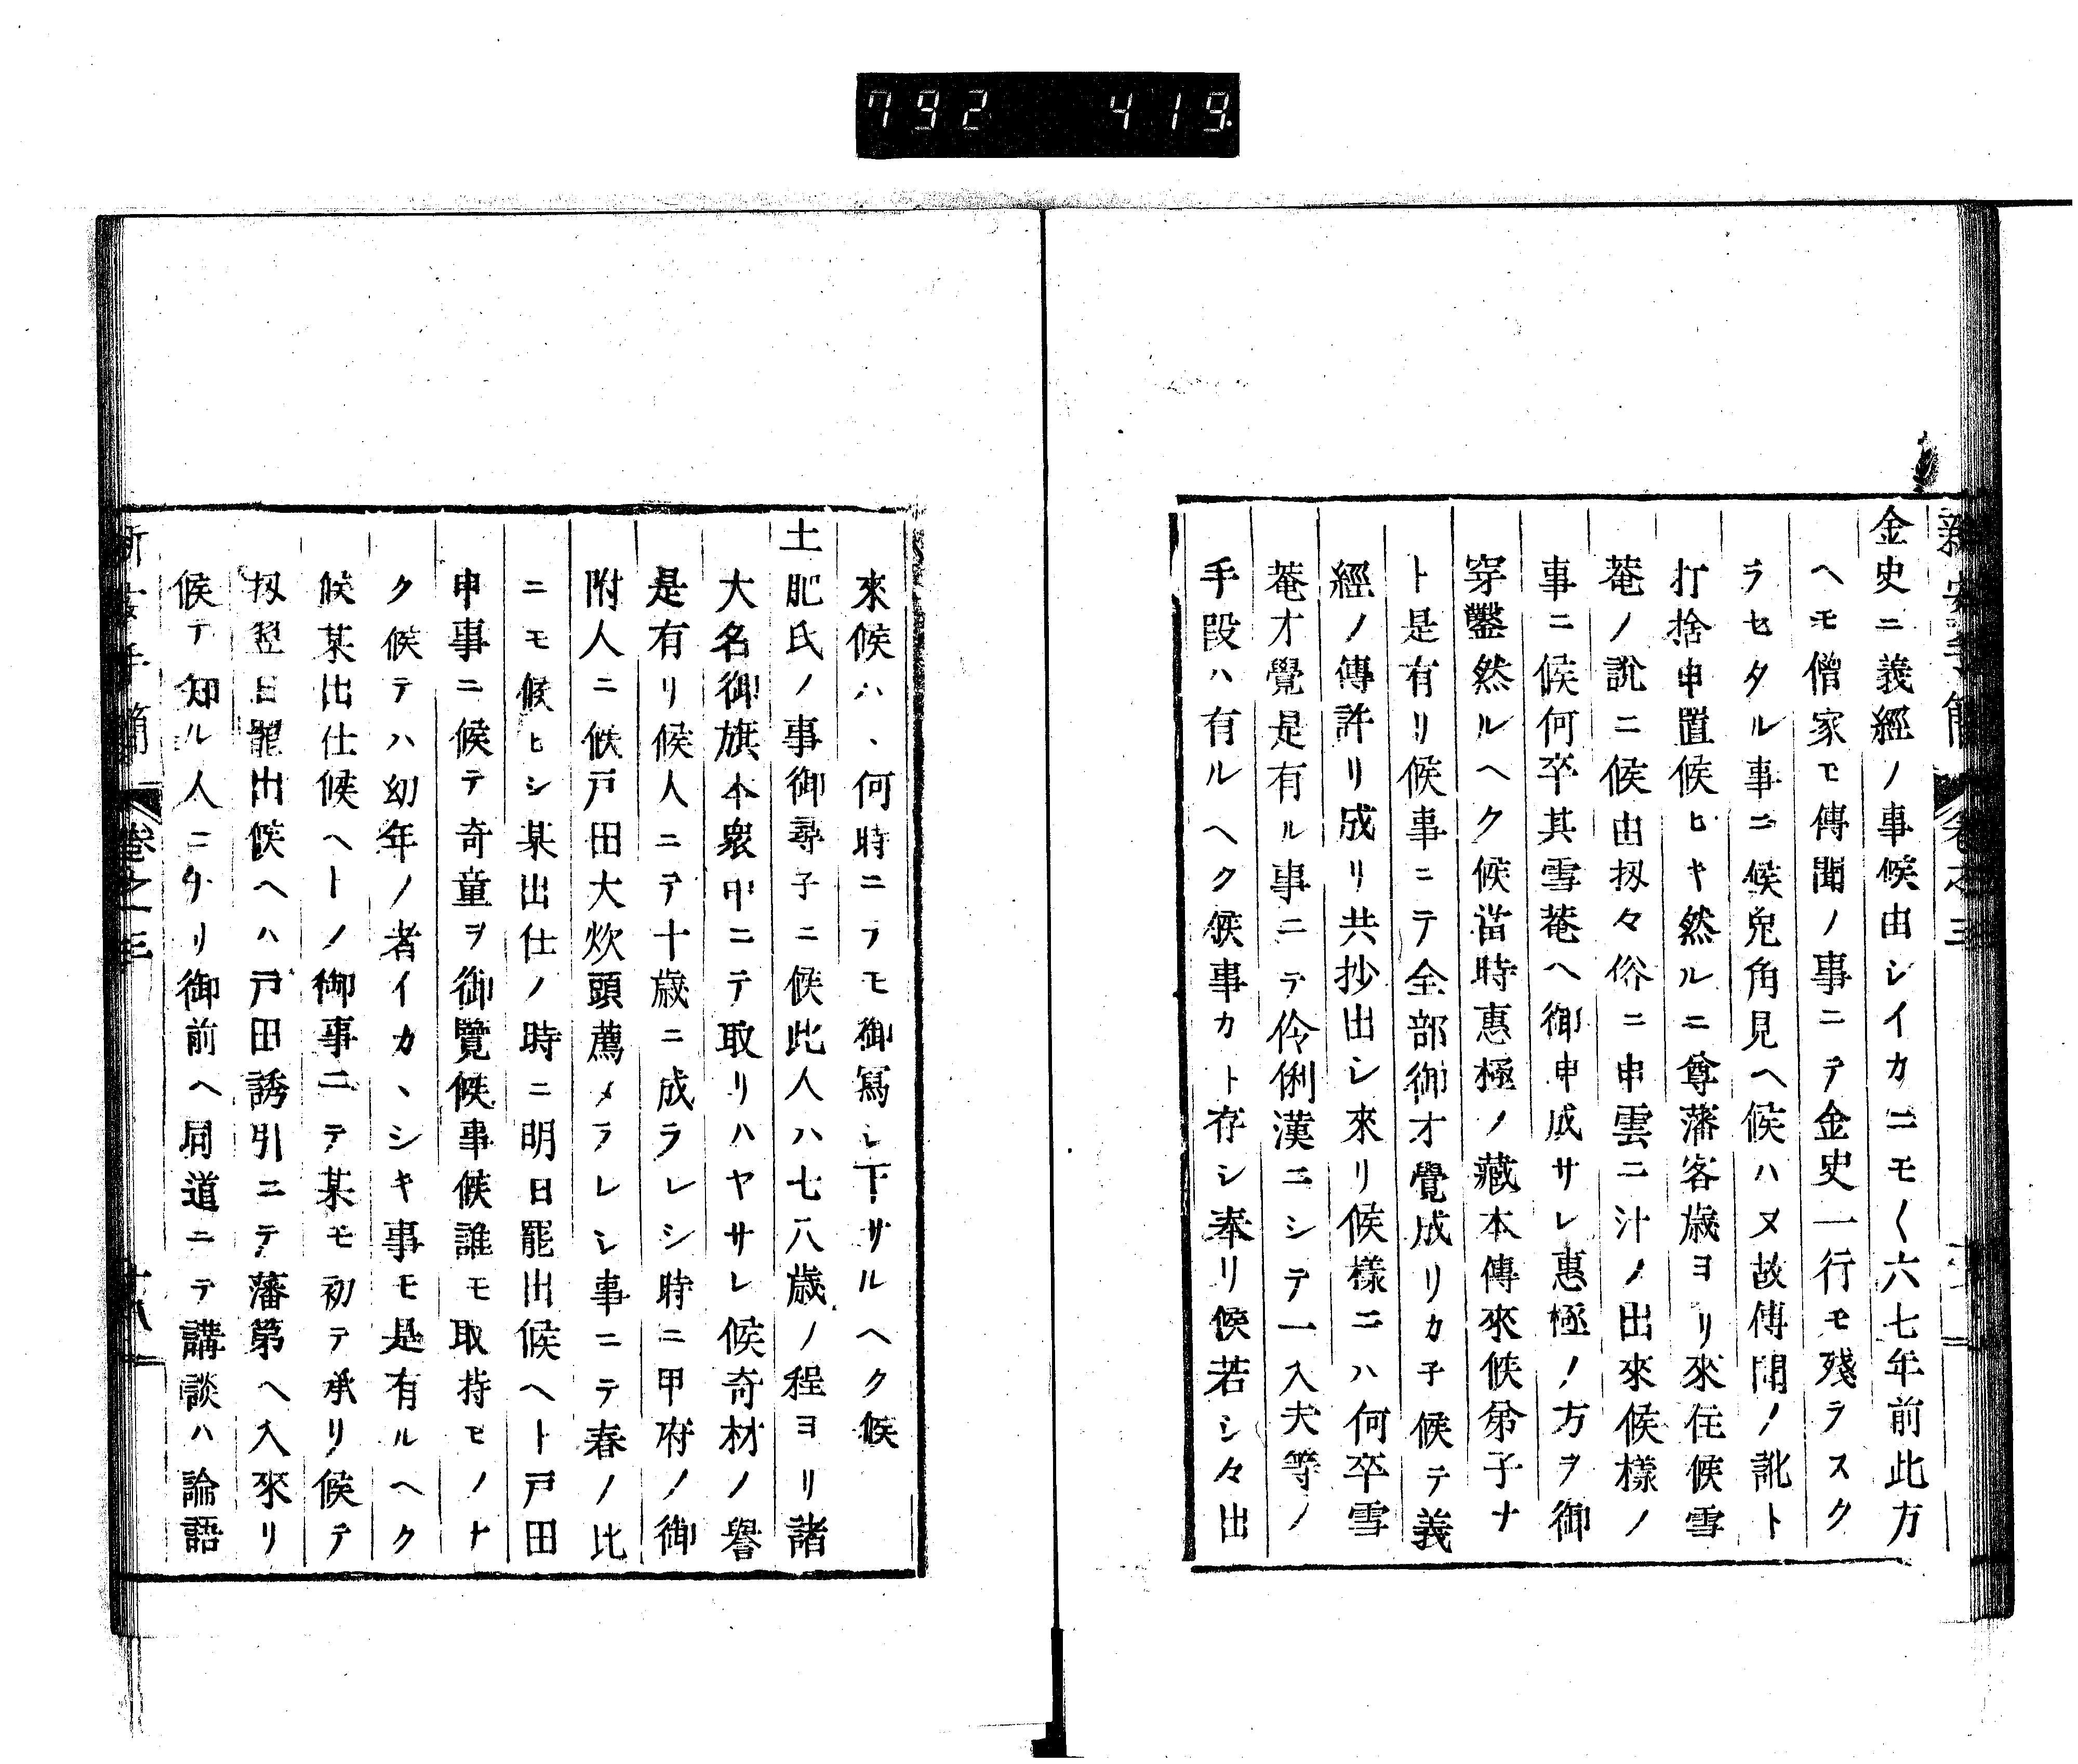 792 419
新安手簡 卷之三
金史ニ義經ノ事候由シイカニモ〱六七年前此方
ヘモ僧家ヨリ傳聞ノ事ニテ金史一行モ殘ラスク
ラセタル事ニ候兎角見ヘ候ハヌ故傳聞ノ訛ト
打捨申置候ヒキ然ルニ尊藩客歳ヨリ來住候雪
菴ノ說ニ候由扨々俗ニ申雲ニ汁ノ出來候樣ノ
事ニ候何卒其雪菴ヘ御申成サレ惠極ノ方ヲ御
穿鑿然ルヘク候當時惠極ノ藏本傳來候弟子ナ
ト是有リ候事ニテ全部御才覺成リカ子候テ義
經ノ傳許リ成リ共抄出シ來リ候樣ニハ何卒雪
菴才覺是有ル事ニテ伶俐漢ニシテ一入夫等ノ
手段ハ有ルヘク候事カト存シ奉リ候若シ々出
來候ハヽ何時ニラモ御寫シ下サルヘク候
土肥氏ノ事御尋子ニ候此人ハ七八歳ノ程ヨリ諸
大名御旗本衆中ニテ取リハヤサレ候奇材ノ譽
是有リ候人ニテ十歳ニ成ラレシ時ニ甲府ノ御
附人ニ候戸田大炊頭薦メラレシ事ニテ春ノ比
ニモ候ヒシ某出仕ノ時ニ明日罷出候ヘト戸田
申事ニ候テ奇童ヲ御覽候事候誰モ取持ヒノナ
ク候テハ幼年ノ者イカヽシキ事モ是有ルヘク
候某出仕候ヘトノ御事ニテ某モ初テ承リ候テ
扨翌日罷出候ヘハ戸田誘引ニテ藩第ヘ入來リ
候テ知ル人ニナリ御前ヘ同道ニテ講談ハ論語
新安手簡 卷之三 十八